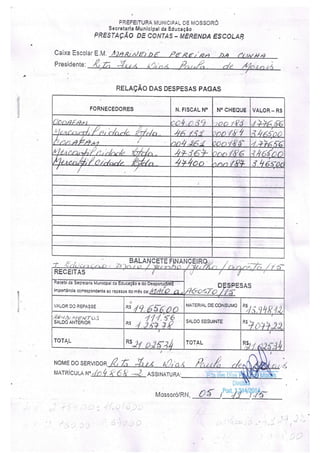 PREFEITURA MUNICIPAL DE MOSSORÓ
Secretaria Municipal da Educação
PRESTAÇÃO DE CONTAS – MERENDA ESCOLAR
Caixa Escolar E.M. MARINEIDE PEREIRA DA CUNHA
Presidente: Rita Dias de Morais
RELAÇÃO DAS DESPESAS PAGAS
FORNECEDORES N. FISCAL Nº Nº CHEQUE VALOR – R$
COOAFAM 004.039 000185 1.776,56
Mercantil Cidade Ltda. 46151 000184 3.465,00
COOAFAM 004261 000185 1.776,56
Mercantil Cidade Ltda. 47367 000186 3.465,00
Mercantil Cidade Ltda. 47400 000187 3.465,00
BALANCETE FINANCEIRO
maio/junho/julho/agosto/15
RECEITAS
DESPESAS
importância correspondente ao repasse do mês de MAIO a AGOSTO/15
VALOR DO REPASSE R$ 19.656,00 MATERIAL DE CONSUMO R$ 13.948,12
RENDIMENTOS 111,56
SALDO ANTERIOR R$ 1.257,78 SALDO SEGUINTE R$ 7.077,22
TOTAL R$ 21.025,34 TOTAL R$ 21.025,34
NOME DO SERVIDOR Rita Dias de Morais
MATRÍCULA Nº 104268-2 ASSINATURA:
Mossoró/RN, 05 / 11 / 15